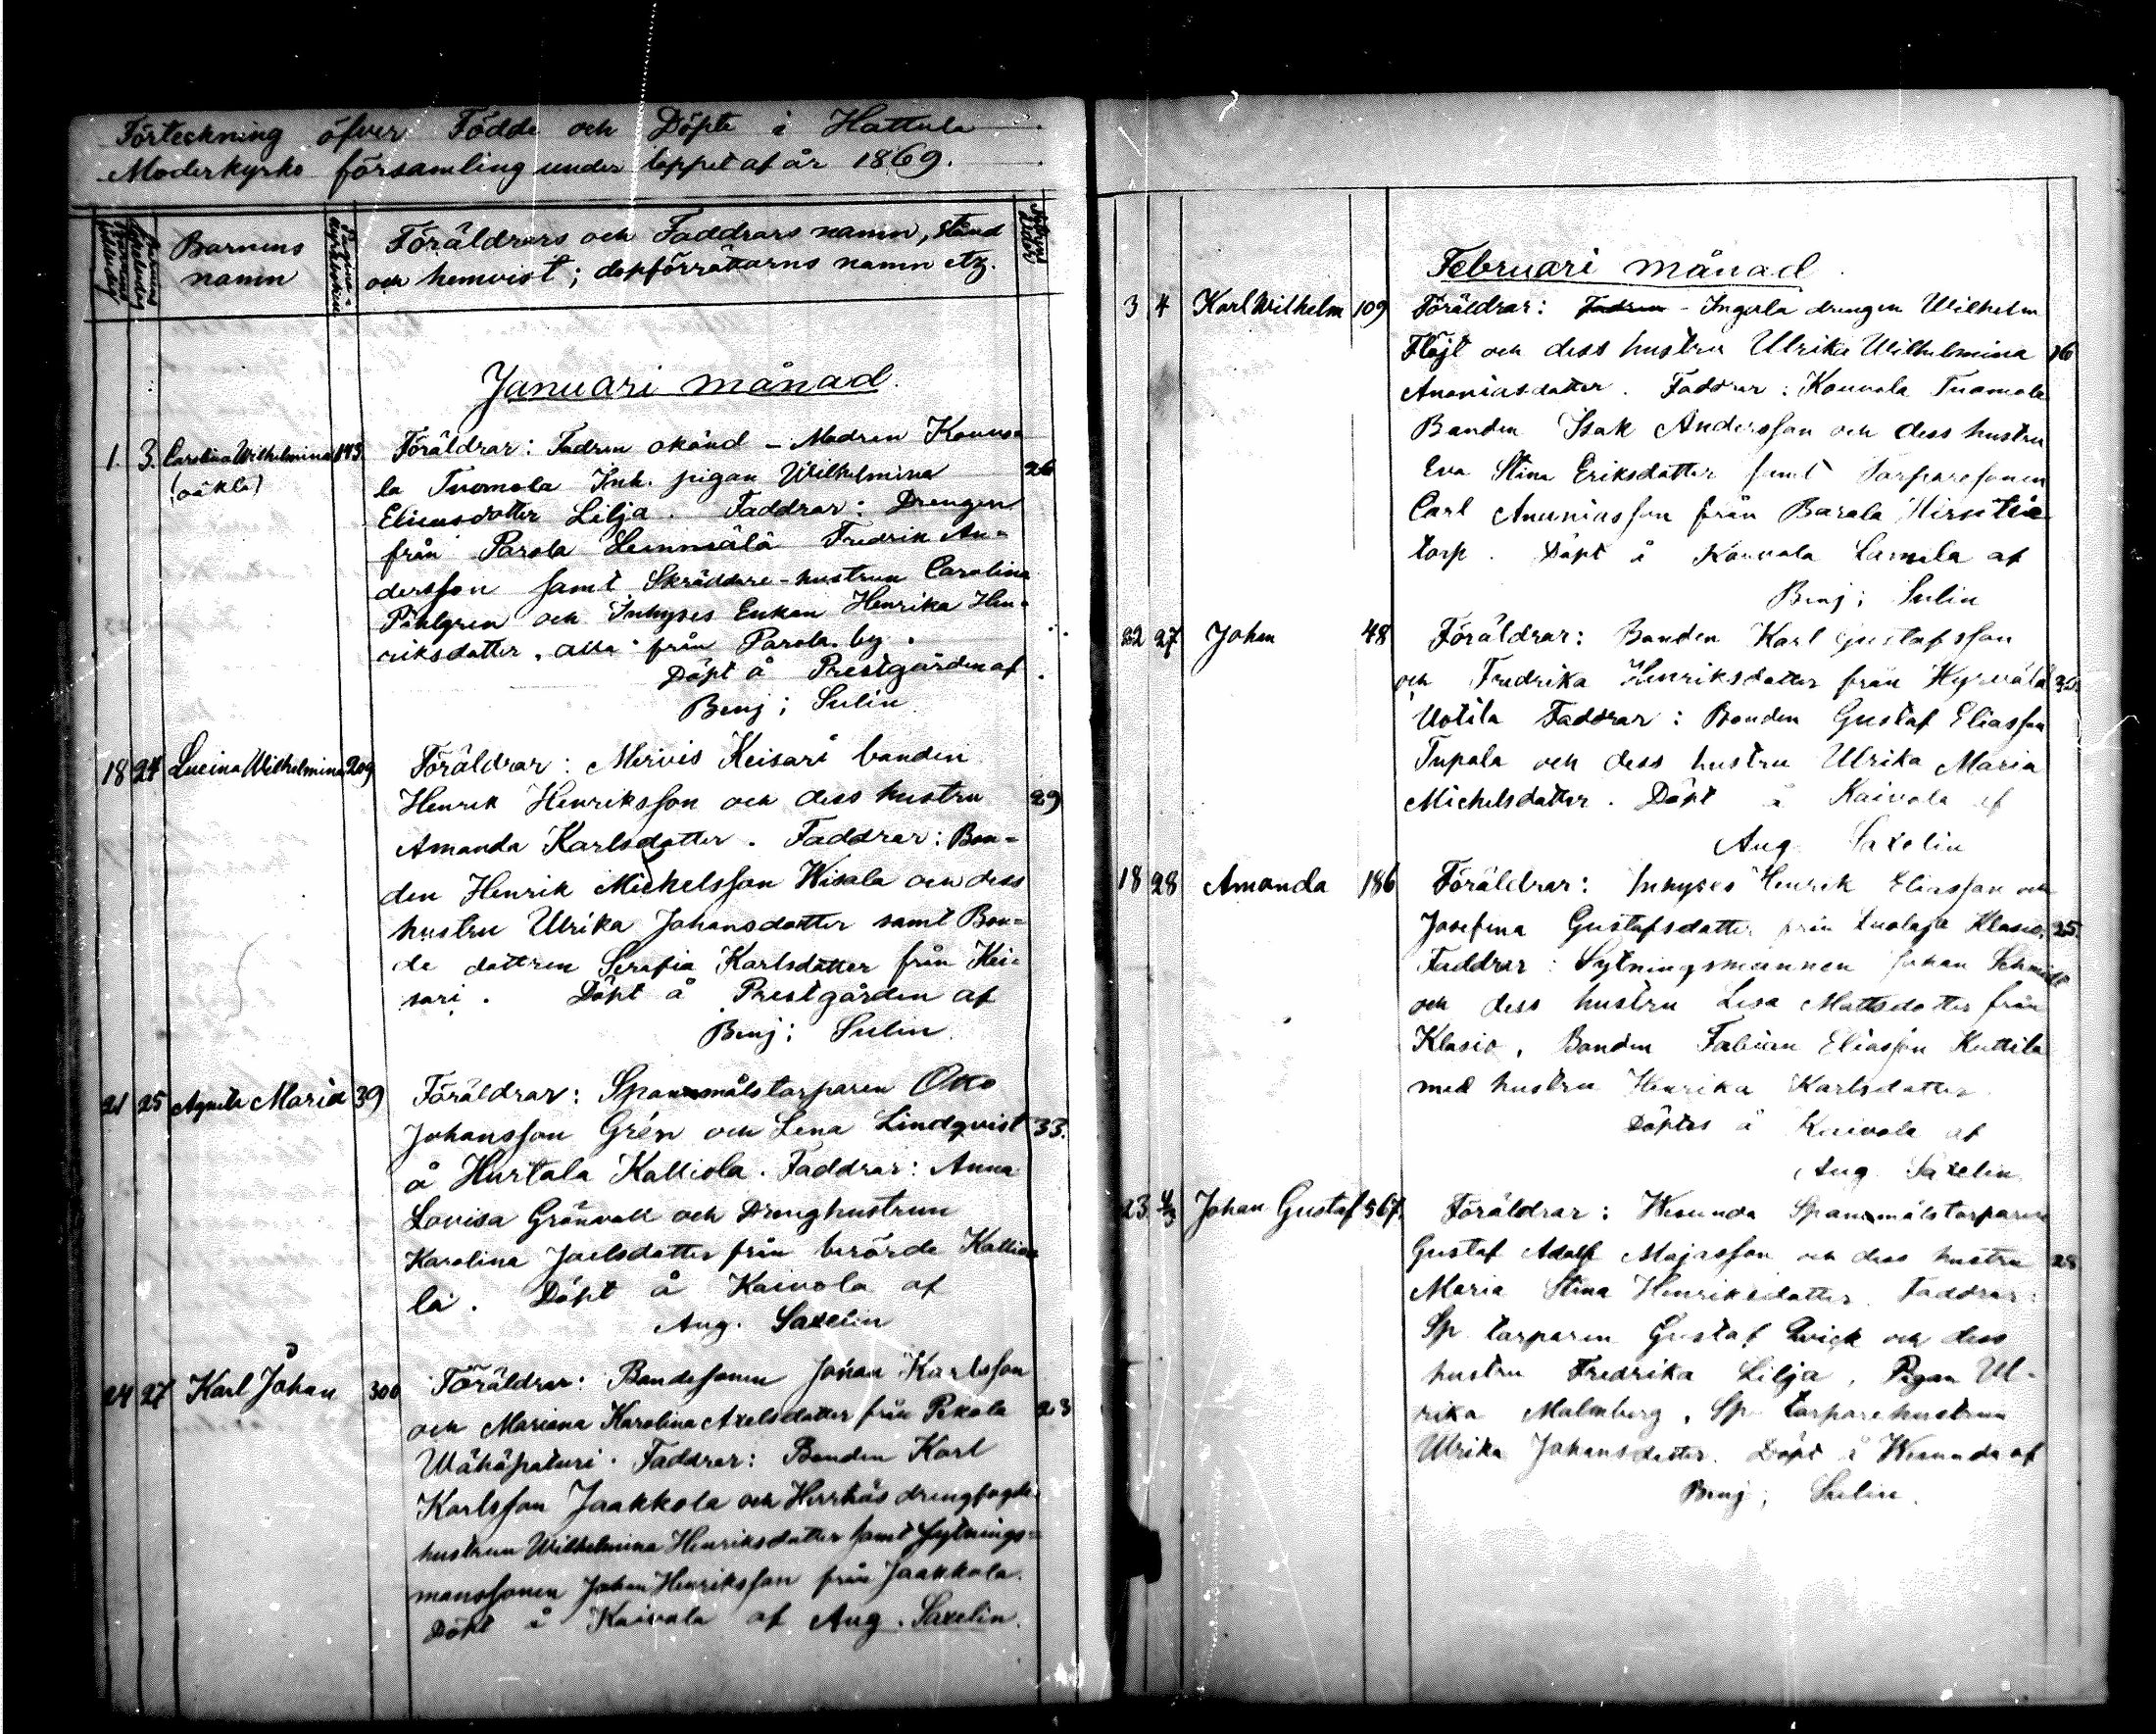 Förteckning öfver Födde och Döpte i Hattula
Moderkyrko församling under loppet af år 1869.
Barnens
namn
Föräldrars och Faddrars namn, stånd
och hemvist; dopförrättarns namn etz.
Januari månad.
1. 3. Carolina Wilhelmina 143 Föräldrar: Fadren okänd – Modren Kouvo-
(oäkta) la Tuomola Inh. pigan Wilhelmina 26
Eliaesdotter Lilja. Faddrar: Drengen
från Parola Lemmälä Fredrik An-
dersson samt Skräddare-hustrun Carolina
Påhlgren och Inhyses Enkan Henrika Hen-
riksdotter, alla från Parola by.
Döpt å Prestgården af
Benj: Sulin
18 24 Lucina Wilhelmina 209 Föräldrar: Mervis Keisari bonden
Henrik Henriksson och dess hustru 29
Amanda Karlsdotter. Faddrar: Bon-
den Henrik Michelsson Wisala och dess
hustru Ulrika Johansdotter samt Bon-
de dottren Serafia Karlsdotter från Kei-
sari. Döpt å Prestgården af
Benj: Sulin.
21 25 Agneta Maria 39 Föräldrar: Spanmålstorparen Otto
Johansson Grén och Lena Lindqvist 33.
å Hurtala Kalliola. Faddrar: Anna
Lovisa Grönvall och Drenghustrun
Karolina Joelsdotter från berörde Kallio-
la. Döpt å Kaivola af
Aug. Saxelin
24 27 Karl Johan 300 Föräldrar: Bondesonen Johan Karlsson
och Mariana Karolina Axelsdotter från Pekola 23
Wähäpaturi. Faddrar: Bonden Karl
Karlsson Jaakkola och Herrnäs drengfogde-
hustrun Wilhelmina Henriksdotter samt Sytnings-
manssonen Johan Henriksson från Jaakkola.
Döpt å Kaivola af Aug. Saxelin.
Februari månad.
3 4 Karl Wilhelm 109 Föräldrar: Fadren - Ingerla drengen Wilhelm
Flöjt och dess hustru Ulrika Wilhelmina 36
Ananiasdotter. Faddrar: Kouvola Tuomola
Bonden Isak Andersson och dess hustru
Eva Stina Eriksdotter samt Torparesonen
Carl Ananiasson från Parola
torp. Döpt å Kouvola af
Benj: Sulin
22 27 Johan 48 Föräldrar: Bonden Karl Gustafsson
och Fredrika Henriksdotter från Hyrvälä
Uotila Faddrar: Bonden Gustaf Eliasson
Tupala och dess hustru Ulrika Maria
Michelsdotter. Döpt å Kaivola af
Aug. Saxelin
18 28 Amanda 186 Föräldrar: Inhyses Henrik Eliasson och
Josefina Gustafsdotter från Luolaja Klasio. 25.
Faddrar: Sytningsmannen Johan Schmidt
och dess hustru Lisa Mattsdotter från
Klasio, Bonden Fabian Eliasson Kuttila
med hustru Henrika Karlsdotter
Döptes å Kaivola af
Aug. Saxelin
23 1/3 Johan Gustaf 567. Föräldrar: Wesunda Spanmålstorparen
Gustaf Adolf Majasson och dess hustru 28
Maria Stina Henriksdotter. Faddrar:
Sp. torparen Gustaf Qvick och dess
hustru Fredrika Lilja, Pigan Ul-
rika Malmberg, Sp. torparehustrun
Ulrika Johansdotter. Döpt i Wesunda af
Benj; Sulin.